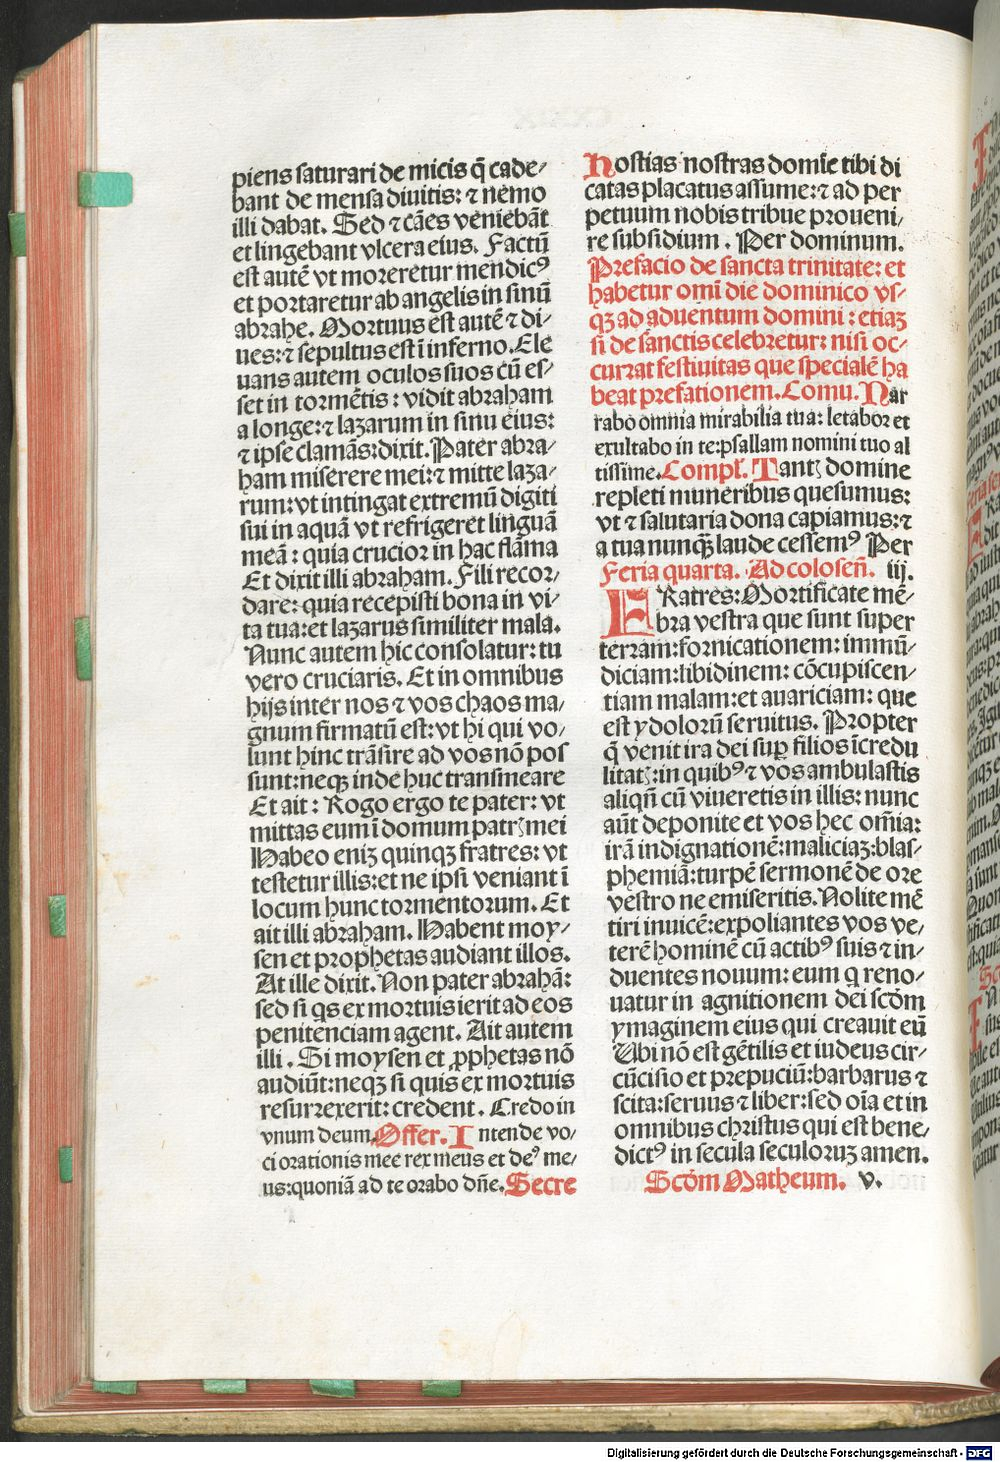 piens saturari de micis q̄ cade⸗
bant de mensa diuitis: ⁊ nemo
illi dabat. Sed ⁊ cāes veniebāt
et lingebant vlcera eius. Factū
est autē vt moreretur mendicꝰ
et portaretur ab angelis in sinū
abrahe. Mortuus est autē ⁊ di⸗
ues: ⁊ sepultus est ī inferno. Ele
uans autem oculos suos cū es⸗
set in tormētis: vidit abraham
a longe: ⁊ lazarum in sinu eius:
⁊ ipse clamās: dixit. Pater abra⸗
ham miserere mei: ⁊ mitte laza⸗
rum: vt intingat extremū digiti
sui in aquā vt refrigeret linguā
meā: quia crucior in hac flāma
Et dixit illi abraham. Fili recor⸗
dare: quia recepisti bona in vi⸗
ta tua: et lazarus similiter mala.
Nunc autem hic consolatur: tu
vero cruciaris. Et in omnibus
hijs inter nos ⁊ vos chaos ma⸗
gnum firmatū est: vt hi qui vo⸗
lunt hinc trāsire ad vos nō pos
sunt: neqꝫ inde huc transmeare
Et ait: Rogo ergo te pater: vt
mittas eum ī domum patrꝫ mei
Habeo eniꝫ quinqꝫ fratres: vt
testetur illis: et ne ipsi veniant ī
locum hunc tormentorum. Et
ait illi abraham. Habent moy⸗
sen et prophetas audiant illos.
At ille dixit. Non pater abrahā:
sed si qs ex mortuis ierit ad eos
penitenciam agent. Ait autem
illi. Si moysen et ꝓphetas nō
audiūt: neqꝫ si quis ex mortuis
resurrexerit: credent. Credo in
vnum deum. Offer. Intende vo⸗
ci orationis mee rex meus et deꝰ me⸗
us: quoniā ad te orabo dñe. Secre
Hostias nostras domīe tibi di
catas placatus assume: ⁊ ad per
petuum nobis tribue proueni⸗
re subsidium. Per dominum.
Prefacio de sancta trinitate: et
habetur omī die dominico vs⸗
qꝫ ad aduentum domini: etiaꝫ
si de sanctis celebretur: nisi oc⸗
currat festiuitas que specialē ha
beat prefationem. Comu. Nar
rabo omnia mirabilia tua: letabor et
exultabo in te: psallam nomini tuo al
tissime. Compl̄. Tantꝫ domine
repleti muneribus quesumus:
vt ⁊ salutaria dona capiamus: ⁊
a tua nunqꝫ laude cessemꝰ Per
Feria quarta. Ad coloseñ. iij.
FRatres: Mortificate mē⸗
bra vestra que sunt super
terram: fornicationem: immū⸗
diciam: libidinem: cōcupiscen⸗
tiam malam: et auariciam: que
est ydolorū seruitus. Propter
q̄ venit ira dei suꝑ filios īcredu
litatꝫ: in quibꝰ ⁊ vos ambulastis
aliqñ cū viueretis in illis: nunc
aūt deponite et vos hec om̄ia:
irā indignationē: maliciaꝫ: blas⸗
phemiā: turpē sermonē de ore
vestro ne emiseritis. Nolite mē
tiri inuicē: expoliantes vos ve⸗
terē hominē cū actibꝰ suis ⁊ in⸗
duentes nouum: eum q reno⸗
uatur in agnitionem dei scōm
ymaginem eius qui creauit eū
Ubi nō est gētilis et iudeus cir⸗
cūcisio et prepuciū: barbarus ⁊
scita: seruus ⁊ liber: sed oīa et in
omnibus christus qui est bene⸗
dictꝰ in secula seculoruꝫ amen.
Scōm Matheum. v.
Digitalisierung gefördert durch die Deutsche Forschungsgemeinschaft - DFG